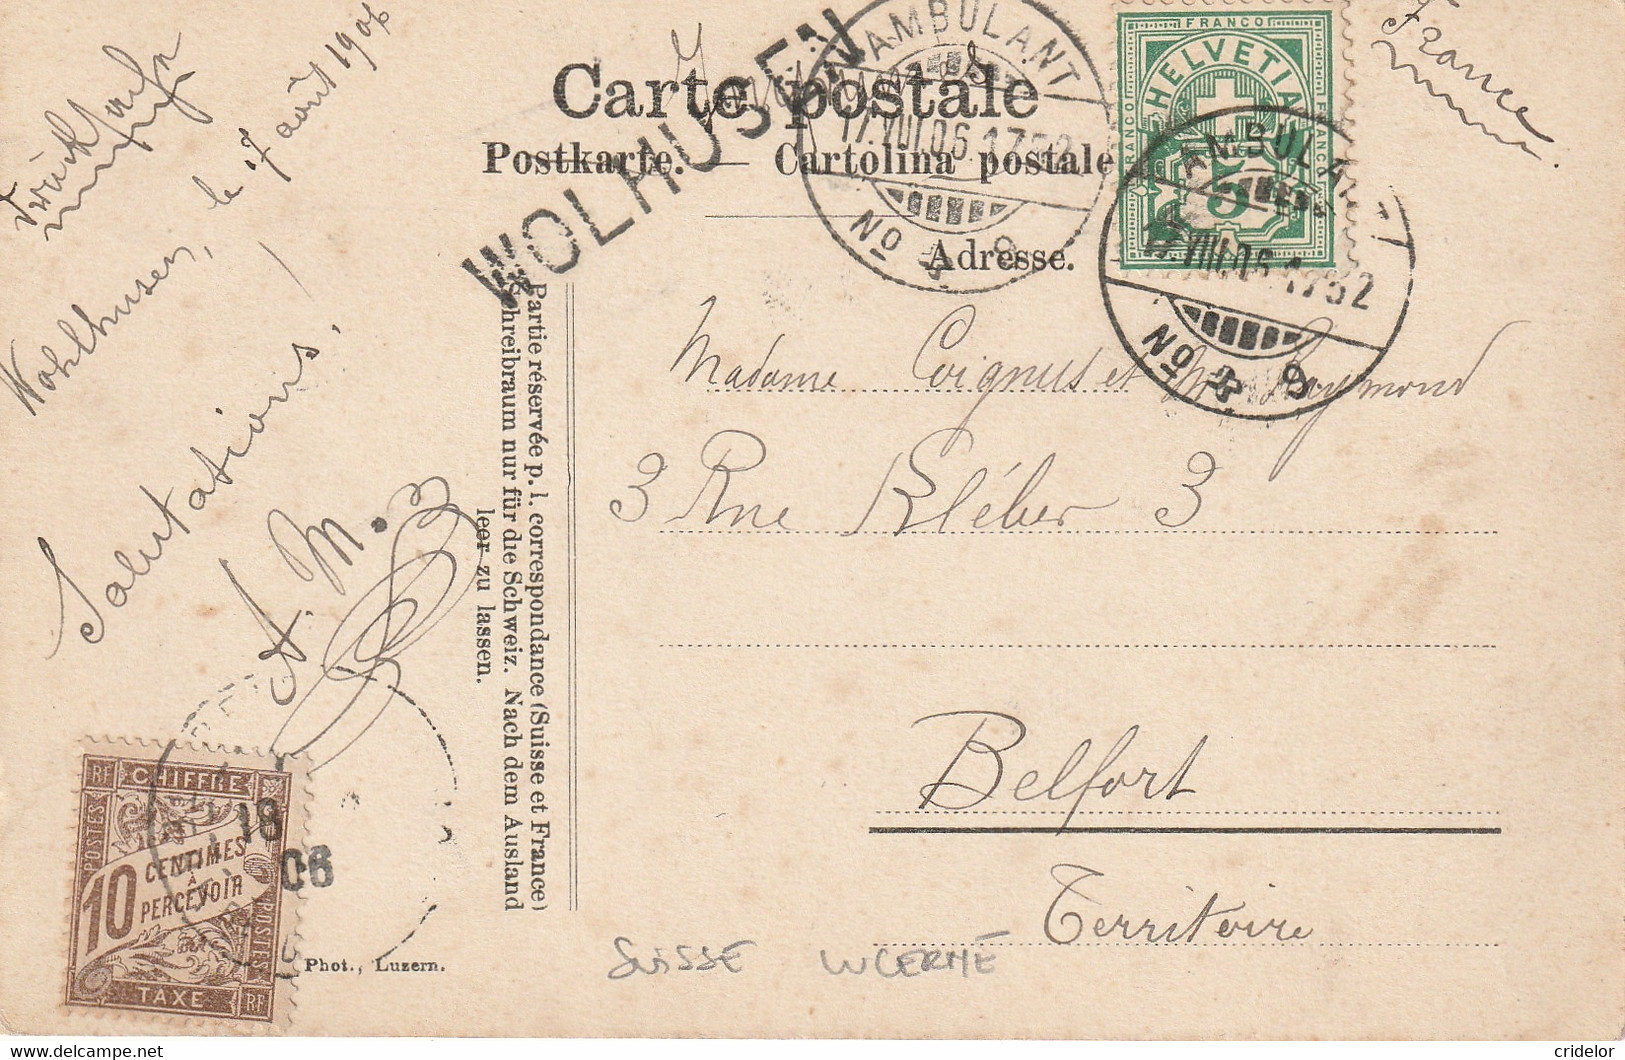 Carte postale
Postkarte. — Cartolina postale
Adresse.
WOLHUSEN
AMBULANT
17.VIII.06.1752
No 4 8
FRANCO
HELVETIA
FRANCO
FRANCO
5
AMBULANT
VIII.06.1752
No 4 8
France
Wohlhusen, le 17 août 1906
Salutations,
A. M.
Partie réservée p. l. correspondance (Suisse et France)
Schreibraum nur für die Schweiz. Nach dem Ausland
leer zu lassen.
Madame Coignus et Raymond
3 Rue Kléber 3
Belfort
Territoire
RF CHIFFRE
10 CENTIMES
À
PERCEVOIR
POSTES
POSTES
TAXE RF
18
06
Phot., Luzern.
SUISSE LUCERNE
www.delcampe.net
cridelor